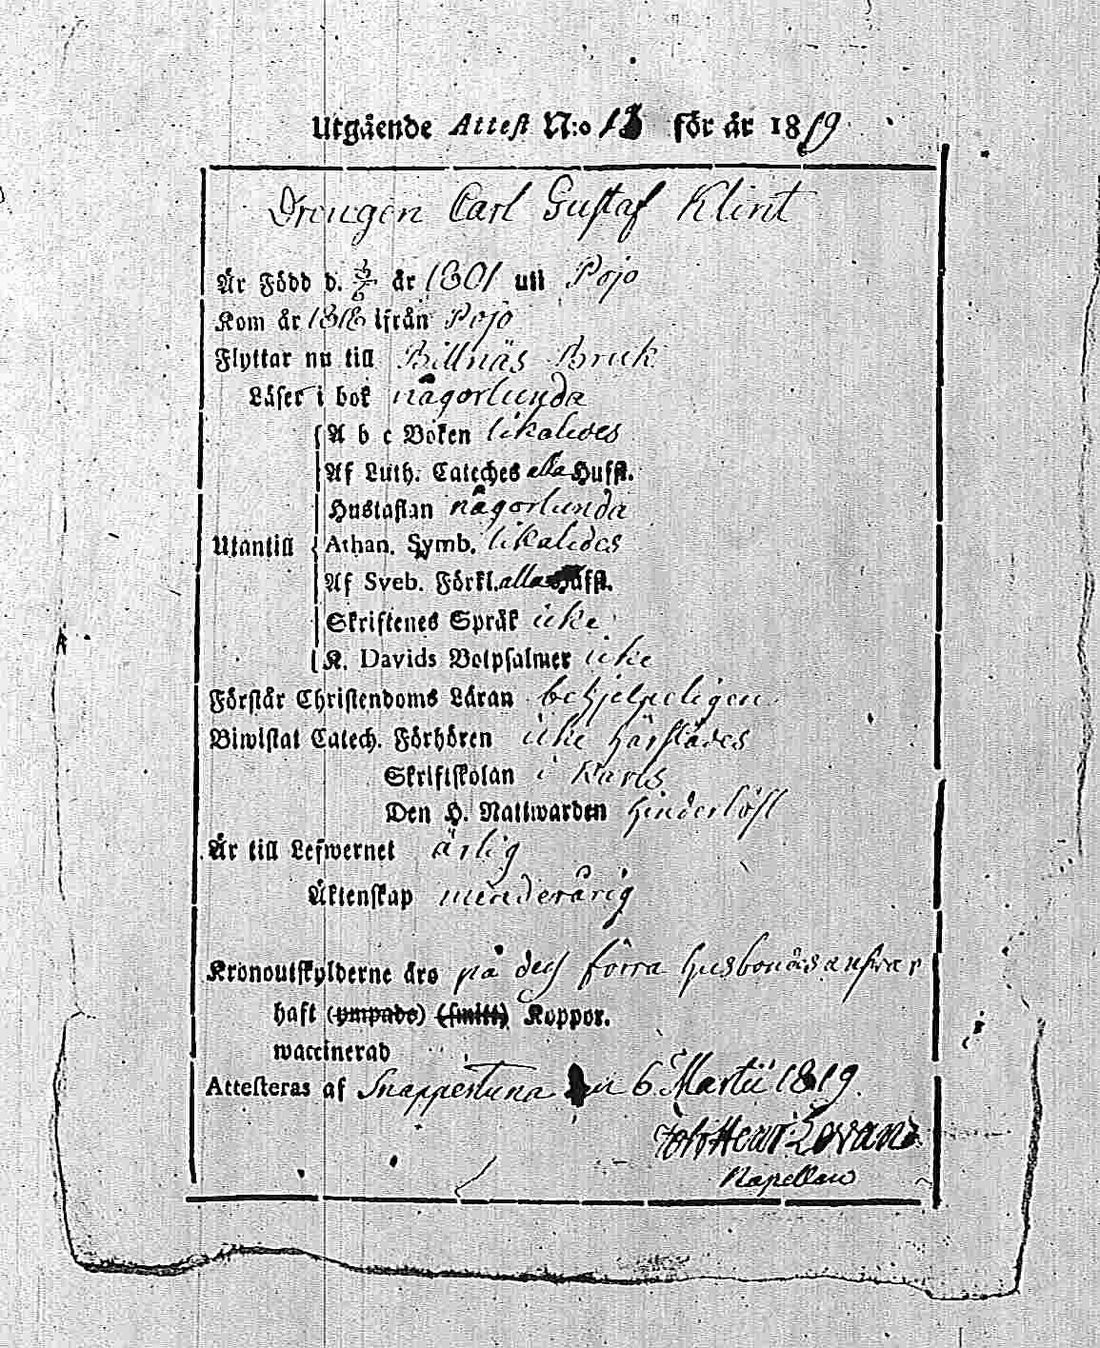 Utgående Attest N:o 13 för år 1819
Drengen Carl Gustaf Klint
Är Född d. 3/6 år 1801 uti Pojo
Kom år 1818 ifrån Pojo
Flyttar nu till Billnäs Bruk
Läser i bok någorlunda
A b c Boken likaledes
Af Luth. Cateches alla Hufst.
Hustaflan någorlunda
Utantill Athan. Symb. likaledes
Af Sveb. Förkl. alla Hufst.
Skriftenes Språk icke
K. Davids Botpsalmer icke
Förstår Christendoms Läran behjelpeligen
Biwistat Catech. Förhören icke härstädes
Skriftskolan i Karis
Den H. Nattwarden hinderlöst
Är till Lefwernet ärlig
Äktenskap minderårig
Kronoutskylderne äro på dess förra husbondas answar
haft (ympade) (smitt) Koppor.
waccinerad
Attesteras af Snappertuna den 6 Martii 1819.
Joh Henr
Kapellan